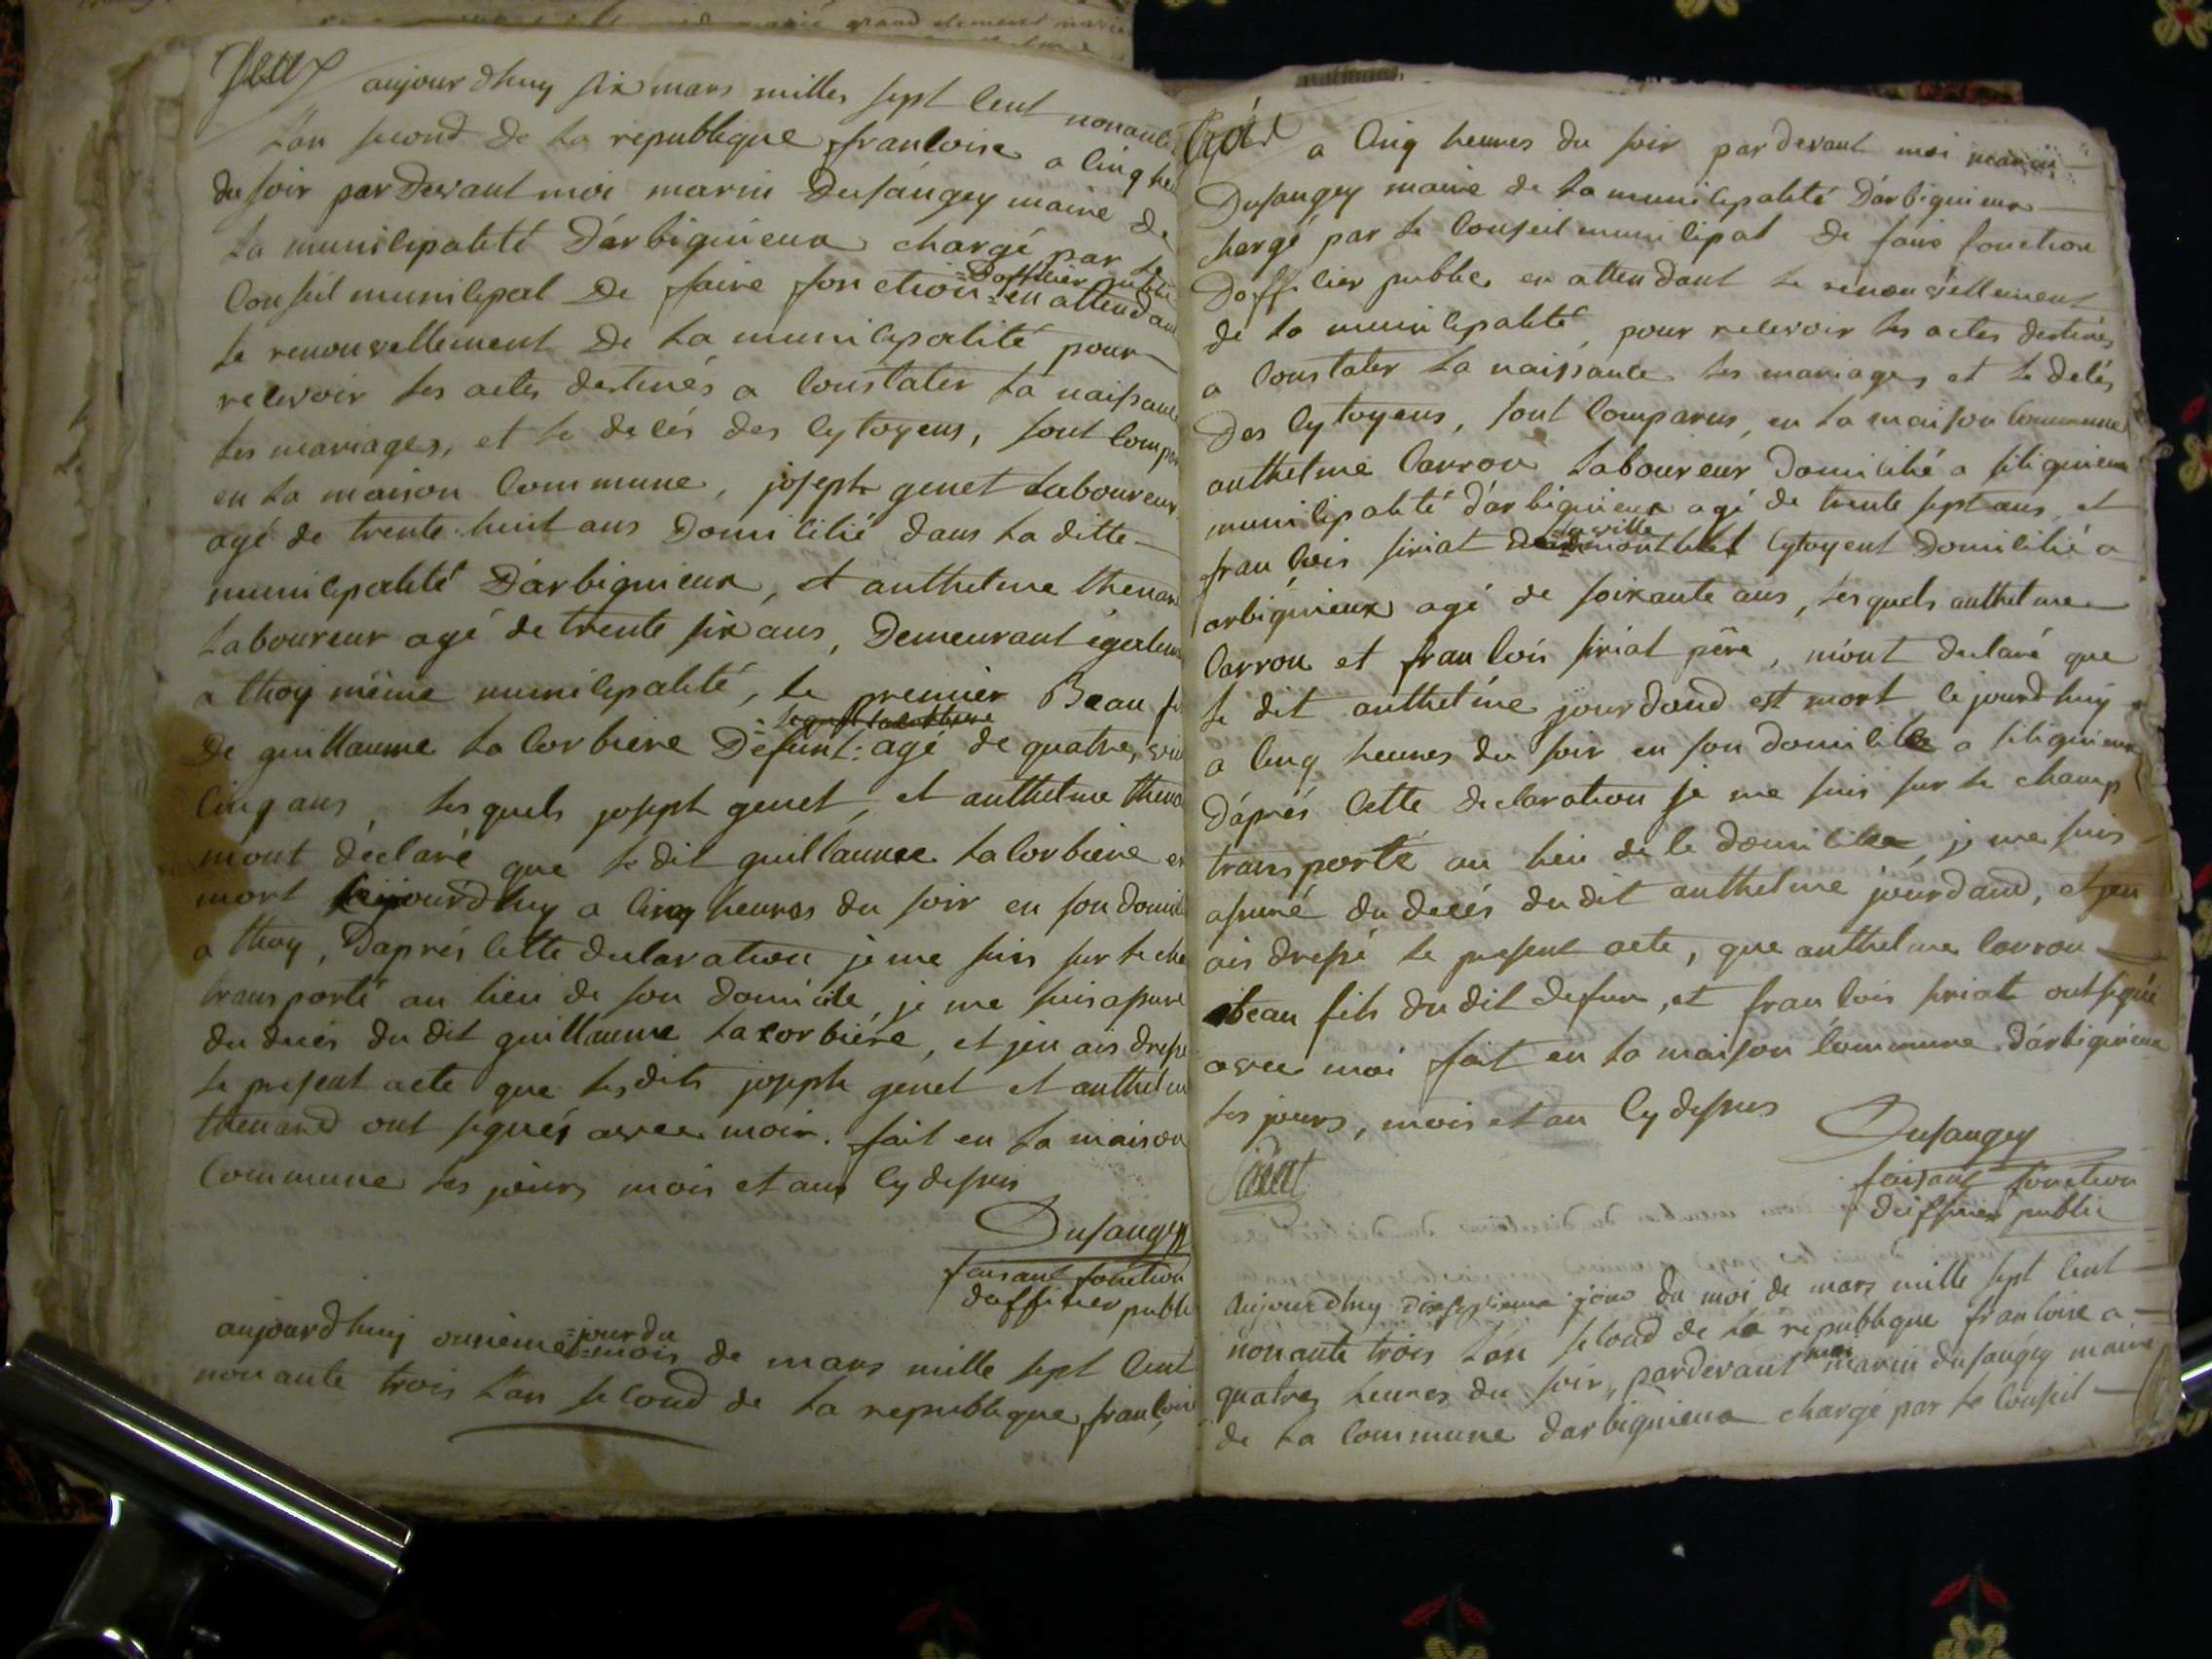 Deux
aujourdhuy six mars milles sept cent nonante
Lan second de la republique francoise a cinq heu
du soir pardevant moi marin Dusaugey maire de
la municipalité D'arbignieux chargé par le
Conseil municipal De faire fonction =Dofficier public=
en attendant
le renouvellement De la municipalité pour
recevoir les actes destinés a constater la naissance
les mariages, et le decés des cytoyens, sont compar
en la maison Commune, joseph genet laboureur
agé de trente huit ans Domicilié dans la ditte
municipalité D'arbignieux, et anthelme thenard
Laboureur agé de trente six ans, Demeurant égalem
a thoy même municipalité, le premier Beau fi
De guillaume la corbiere Défunt: agé de quatre vin
cinq ans, les quels joseph genet, et anthelme thena
mont déclaré que le dit guillaume la corbiere es
mort cejourd'huy a cinq heures du soir en son domici
a thoy, D'aprés cette declaration je me suis sur le cha
transporté au lieu de son domicile, je me suis assuré
du decés du dit guillaume la corbiere, et jen ais dressé
le present acte que les dits joseph genet et anthelm
thenard ont signés avec moi. fait en la maison
Commune les jours mois et an cy dessus
Dusaugey
faisant fonction
dofficier publi
aujourdhuy onzieme =jour du
mois de mars mille sept Cent
nonante trois L'an second de la republique francoise
trois
a Cinq heures du soir pardevant moi marin
Dusaugey maire de la municipalité D'arbignieux
chargé par le Conseil municipal De faire fonction
Dofficier public en attendant le renouvellement
de la municipalité, pour recevoir les actes destinés
a Constater la naissance les mariages et le decés
Des Cytoyens, sont Comparus, en la maison Commune
anthelme Carron Laboureur Domicilié a silignieux
municipalité d'arbignieux agé de trente sept ans, et
francois siriat Cytoyent Domicilié a
arbignieux agé de soixante ans, lesquels anthelme
Carron et francois siriat père, m'ont declaré que
le dit anthelme jourdand est mort cejourdhuy
a cinq heures du soir en son domicile a silignieux
D'aprés Cette declaration je me suis sur le champ
transporté au lieu de le domicile, je me suis
assuré du decés du dit anthelme jourdand, et jen
ais dressé le present acte, que anthelme Carron
beau fils du dit defun, et francois siriat ont signé
avec moi fait en la maison Commune d'arbignieux
les jours, mois et an Cy dessus
Dusaugey
Siriat
faisant fonction
doffisier public
Aujourdhuy dixseptieme jour du moi de mars mille sept Cent
nonante trois L'an second de la republique francoise a
quatres heures du soir, pardevant moi marin dusaugey maire
de la Commune darbignieux chargé par le Conseil